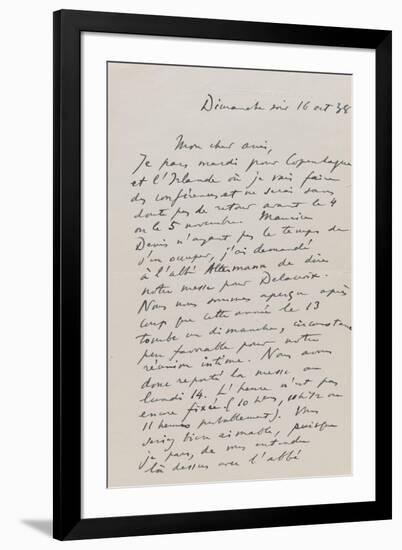 Dimanche soir 16 oct 38
Mon cher ami,
Je pars mardi pour Copenhague
et l'Irlande où je vais faire
des conférences et ne serai sans
doute pas de retour avant le 4
ou le 5 novembre. Maurice
Denis n'ayant pas le temps de
s'en occuper, j'ai demandé
à l'abbé de dire
notre messe pour Delacroix.
Nous nous sommes aperçus après
coup que cette année le 13
tombe un dimanche, circonstance
peu favorable pour notre
réunion intime. Nous avons
donc reporté la messe au
lundi 14. L'heure n'est pas
encore fixée (10 hres, 10h 1/2 ou
11 heures probablement). Vous
seriez bien aimable, puisque
je pars, de vous entendre
là dessus avec l'abbé